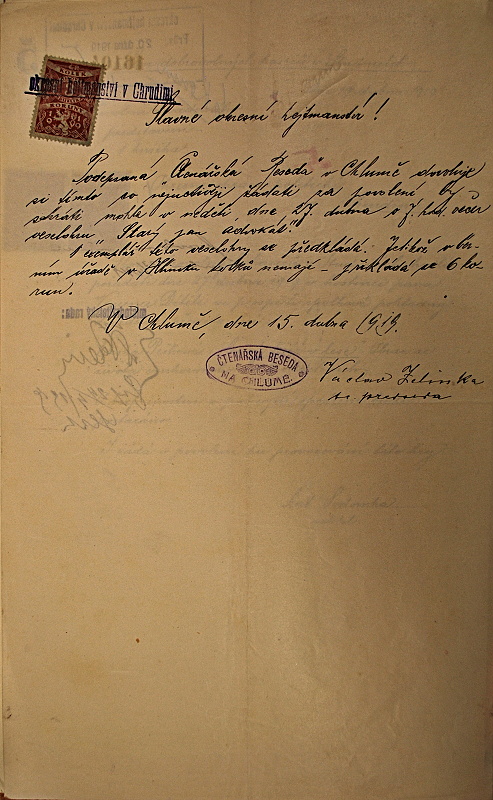 KOLEK
KORUNY
okresní hejtmanství v Chrudimi
Slavné okresní hejtmanství!
Podepsaná "Čtenářská Beseda" v Chlumě dovoluje
si tímto co nejuctivěji žádati za povolení by
sehráti mohla v neděli dne 27. dubna o 7. hod. večer
veselohru "Starý pan advokát."
1 exemplář této veselohry se předkládá. Jelikož v
ním úřadě v Hlinsku kolků nemají – překládá se 6 ko-
run.
V Chlumě, dne 15. dubna 1919.
ČTENÁŘSKÁ BESEDA
NA CHLUMĚ.
Václav Zelinka
předseda